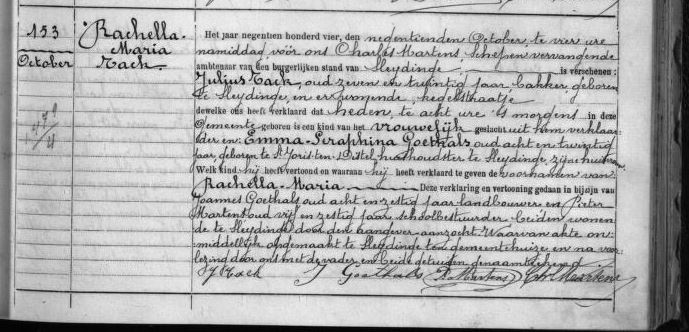 153
October
Rachella-
Maria
Tack.
Het jaar negentien honderd vier, den negentienden October, te vier ure
namiddag vóór ons Charles Martens, Schepen vervangende
ambtenaar van den burgerlijken stand van Sleydinge is verschenen:
Julius Tack, oud zeven en twintig jaar bakker, geboren
te Sleydinge, en er wonende,
dewelke ons heeft verklaard dat heden, te acht ure 's morgens in deze
Gemeente geboren is een kind van het vrouwelijk geslacht uit hem verklaar
der en Emma-Seraphina Goethals oud acht en twintig
jaar, geboren te St Joris ten Distel, huishoudster te Sleydinge, zijne huisvrouw
Welk kind hij heeft vertoond en waaraan hij heeft verklaard te geven de voornamen van
Rachella-Maria Deze verklaring en vertooning gedaan in bijzijn van
Joannes Goethals oud acht en zestig jaar landbouwer en Pieter
Martens oud vijf en zestig jaar schoolbestuurder beiden wonen
de te Sleydinge door den aangever aanzocht. Waarvan akte on
middellijk opgemaakt te Sleydinge ten gemeentehuize en na voor
lezing door ons met de vader en beide getuigen
J Tack J Goethals P. Martens Ch. Martens